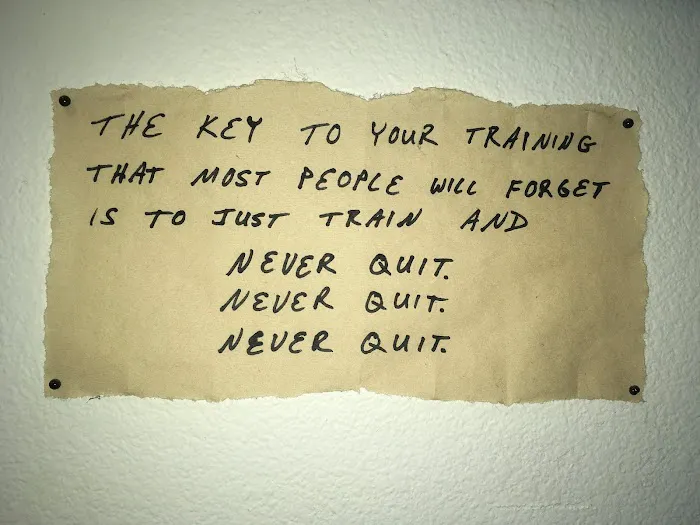 THE KEY TO YOUR TRAINING
THAT MOST PEOPLE WILL FORGET
IS TO JUST TRAIN AND
NEVER QUIT.
NEVER QUIT.
NEVER QUIT.